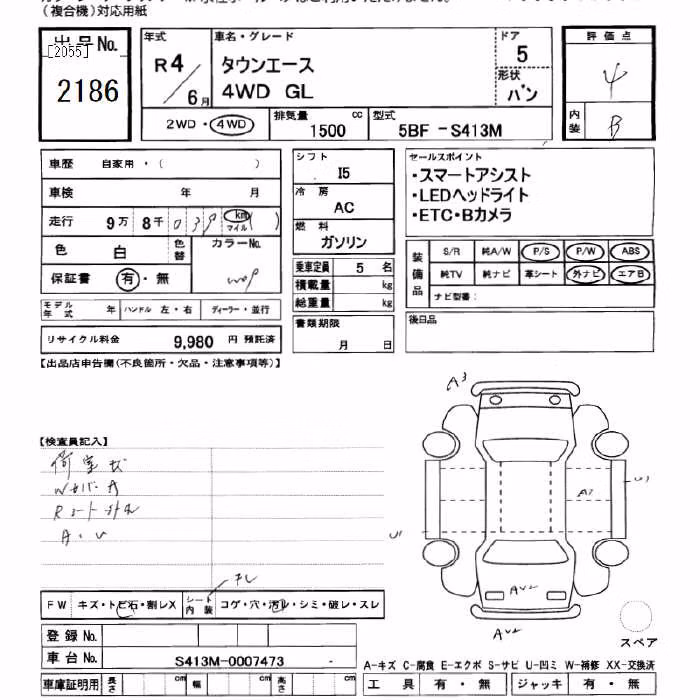 (複合機)対応用紙
出品No.
[2055]
2186
年式
R4/6月
車名・グレード
タウンエース
4WD GL
ドア
5
形状
バン
評価点
4
内装
B
2WD・4WD
排気量 1500 cc
型式 5BF-S413M
車歴 自家用・( )
車検 年 月
走行 9万 8千 039 km マイル ( )
色 白
色替
カラーNo.
W09
保証書 有・無
モデル年式 年
ハンドル 左・右
ディーラー・並行
リサイクル料金 9,980 円 預託済
シフト
I5
冷房
AC
燃料
ガソリン
乗車定員 5 名
積載量 kg
総重量 kg
書類期限
月 日
セールスポイント
・スマートアシスト
・LEDヘッドライト
・ETC・Bカメラ
装備品
S/R 純A/W P/S P/W ABS
純TV 純ナビ 革シート 外ナビ エアB
ナビ型番:
後日品
【出品店申告欄(不良箇所・欠品・注意事項等)】
【検査員記入】
荷室
A・U
A3
U1
A2
U1
AU2
AU2
FW キズ・トビ石・割レX
シート内装 コゲ・穴・汚レ・シミ・破レ・スレ
登録No.
車台No. S413M-0007473
車庫証明用 長さ cm 幅 cm 高さ cm
スペア
A-キズ C-腐食 E-エクボ S-サビ U-凹ミ W-補修 XX-交換済
工具 有・無 ジャッキ 有・無